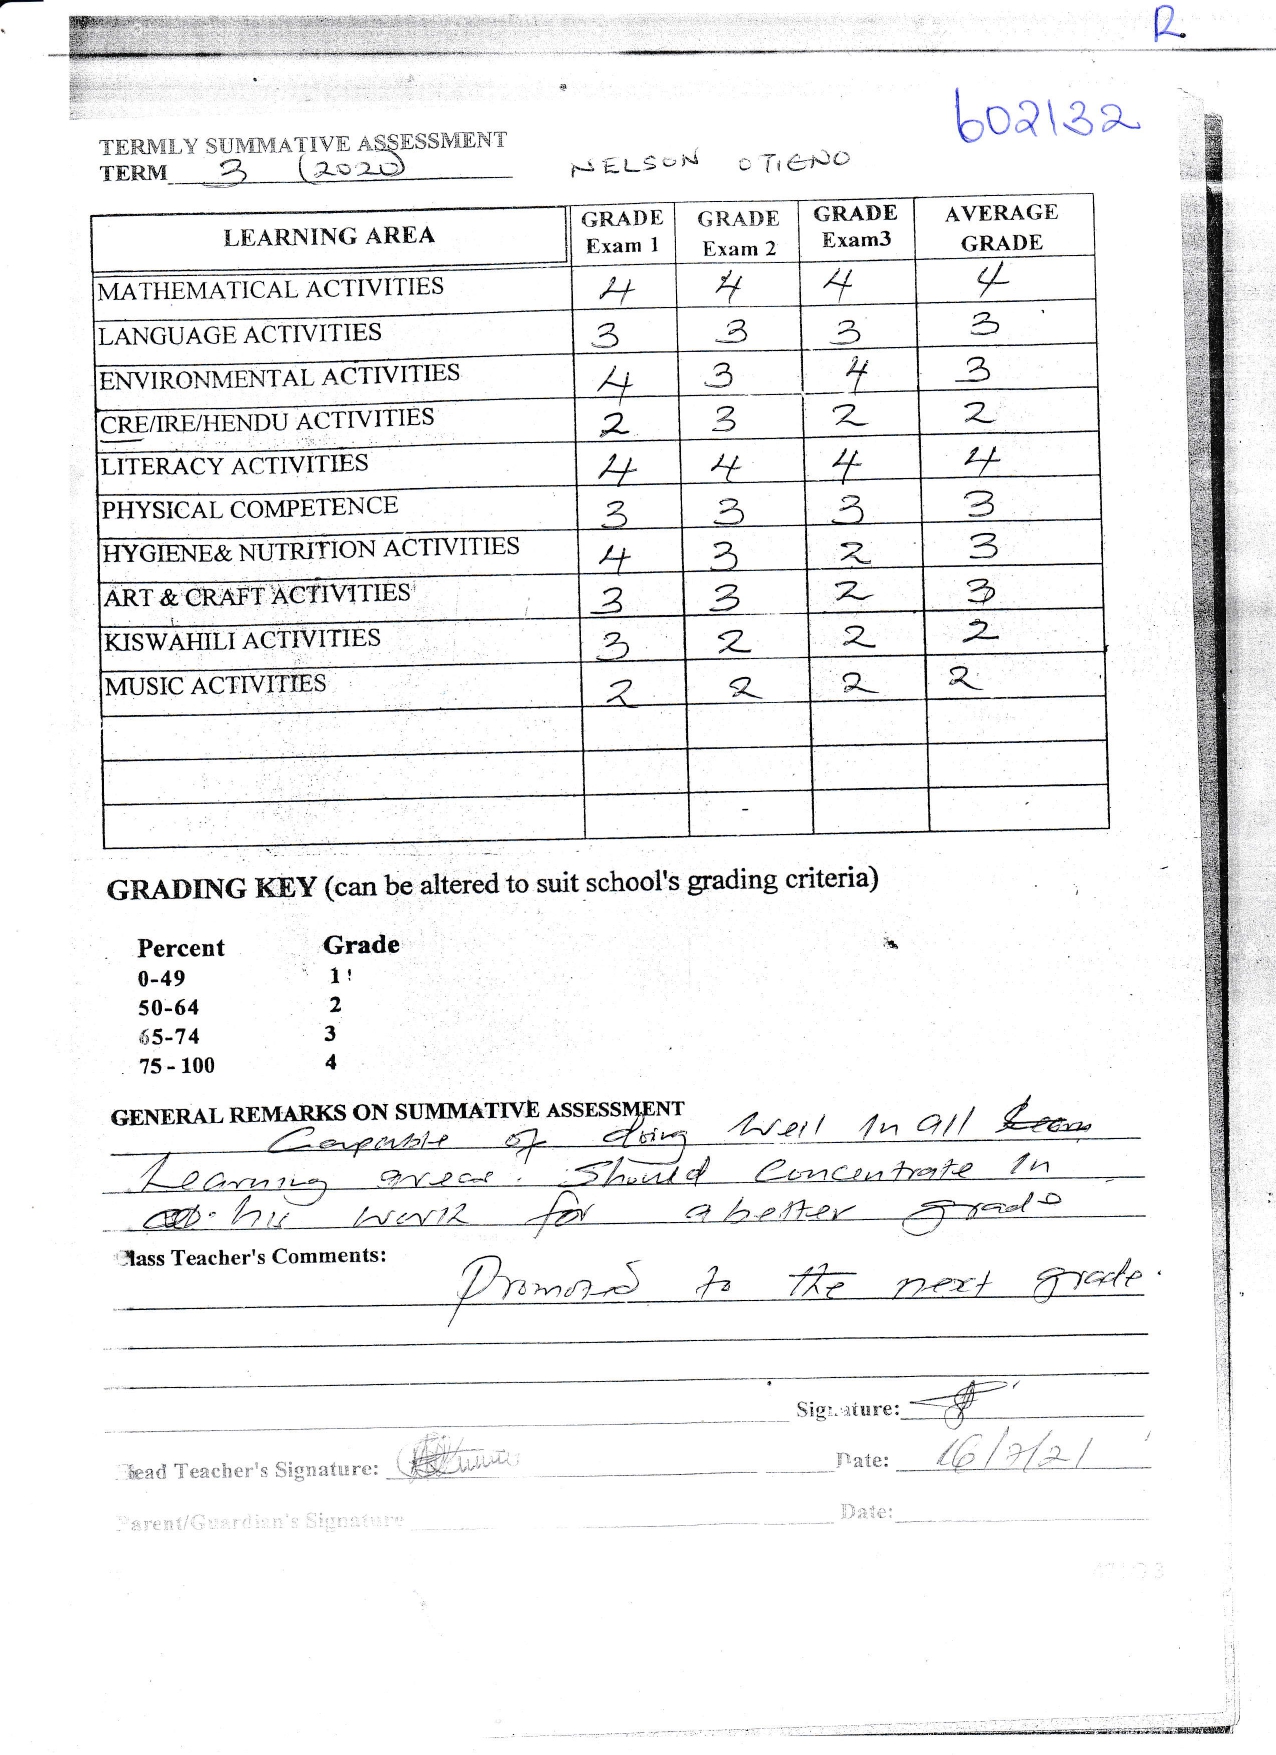 R
602132
TERMLY SUMMATIVE ASSESSMENT
TERM 3 (2020) NELSON OTIENO
LEARNING AREA GRADE Exam 1 GRADE Exam 2 GRADE Exam3 AVERAGE GRADE
MATHEMATICAL ACTIVITIES 4 4 4 4
LANGUAGE ACTIVITIES 3 3 3 3
ENVIRONMENTAL ACTIVITIES 4 3 4 3
CRE/IRE/HENDU ACTIVITIES 2 3 2 2
LITERACY ACTIVITIES 4 4 4 4
PHYSICAL COMPETENCE 3 3 3 3
HYGIENE& NUTRITION ACTIVITIES 4 3 2 3
ART & CRAFT ACTIVITIES 3 3 2 3
KISWAHILI ACTIVITIES 3 2 2 2
MUSIC ACTIVITIES 2 2 2 2
GRADING KEY (can be altered to suit school's grading criteria)
Percent Grade
0-49 1
50-64 2
65-74 3
75 - 100 4
GENERAL REMARKS ON SUMMATIVE ASSESSMENT
Capable of doing well in all
Learning areas. Should concentrate in
his work for a better grade
Class Teacher's Comments:
Promoted to the next grade.
Signature:
Head Teacher's Signature: Date: 16/7/21
Parent/Guardian's Signature Date: